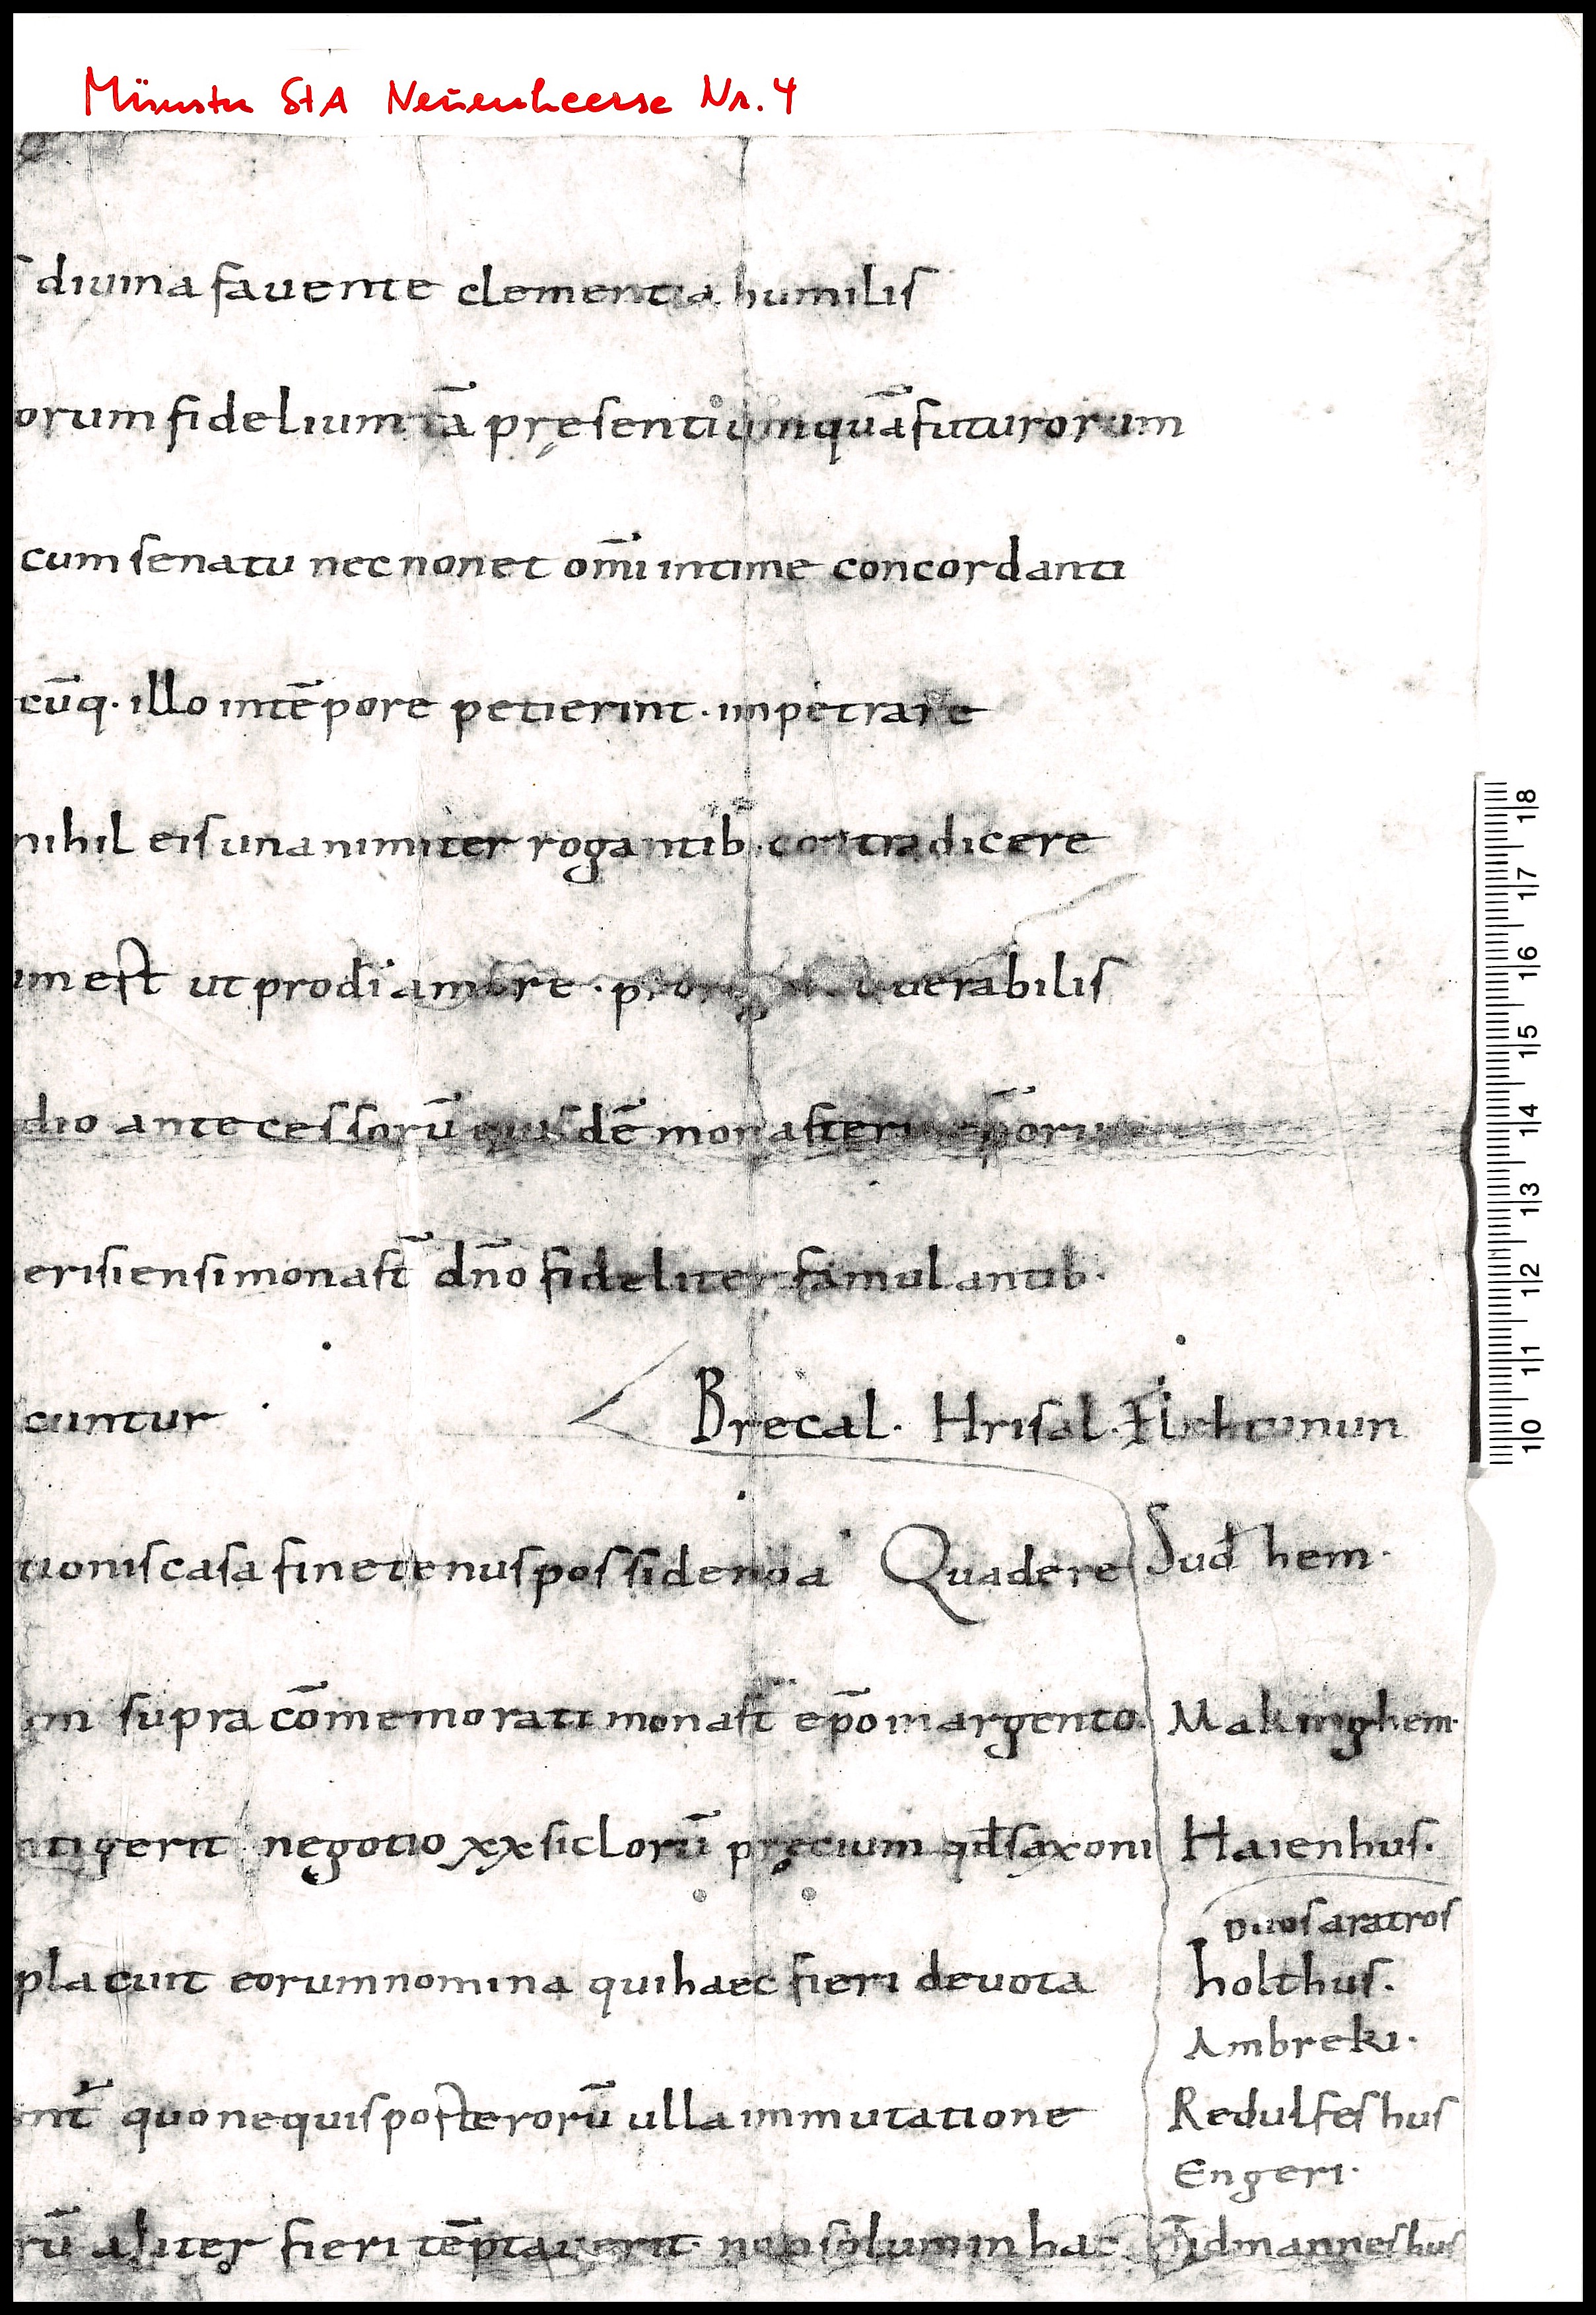 Münster StA Neuenheerse Nr. 4
diuina fauente clementia humilis
orum fidelium tā pręsentium quā futurorum
cum senatu nec non et om̄i intime concordanti
cūq. illo in tēpore petierint. impetrare
nihil eis unanimiter rogantib. contradicere
um est ut pro di amore. uerabilis
dio antecessorū eiusdē monasterii ep̄orum
erisiensi monast̄ dn̄o fideliter famulantib.
cuntur Brecal. Hrisal.
tionis casa fine tenus possidenda Quadere Sud hem.
supra cōmemorati monast̄ ep̄o in argento. Makinghem.
ntigerit negotio xx siclorū pręcium qđ saxoni Haienhus.
duos aratros
placuit eorum nomina qui haec fieri deuota holthus.
Ambreki.
nt̄ quo ne quis posterorū ulla immutatione Redulfeshus
Engeri.
rū aliter fieri tēptauerit. non solum in hac Tidmanneshus
10 11 12 13 14 15 16 17 18